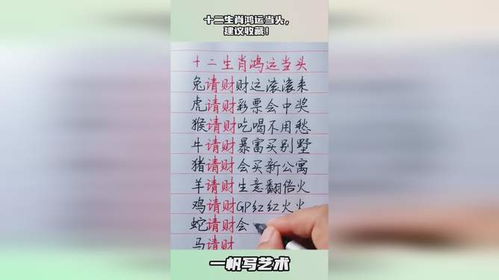 十二生肖鸿运当头，
建议收藏！
十二生肖鸿运当头
兔请财财运滚滚来
虎请财彩票会中奖
猴请财吃喝不用愁
牛请财暴富买别墅
猪请财会买新公寓
羊请财生意翻倍火
鸡请财GP红红火火
蛇请财会
马请财
一帆写艺术